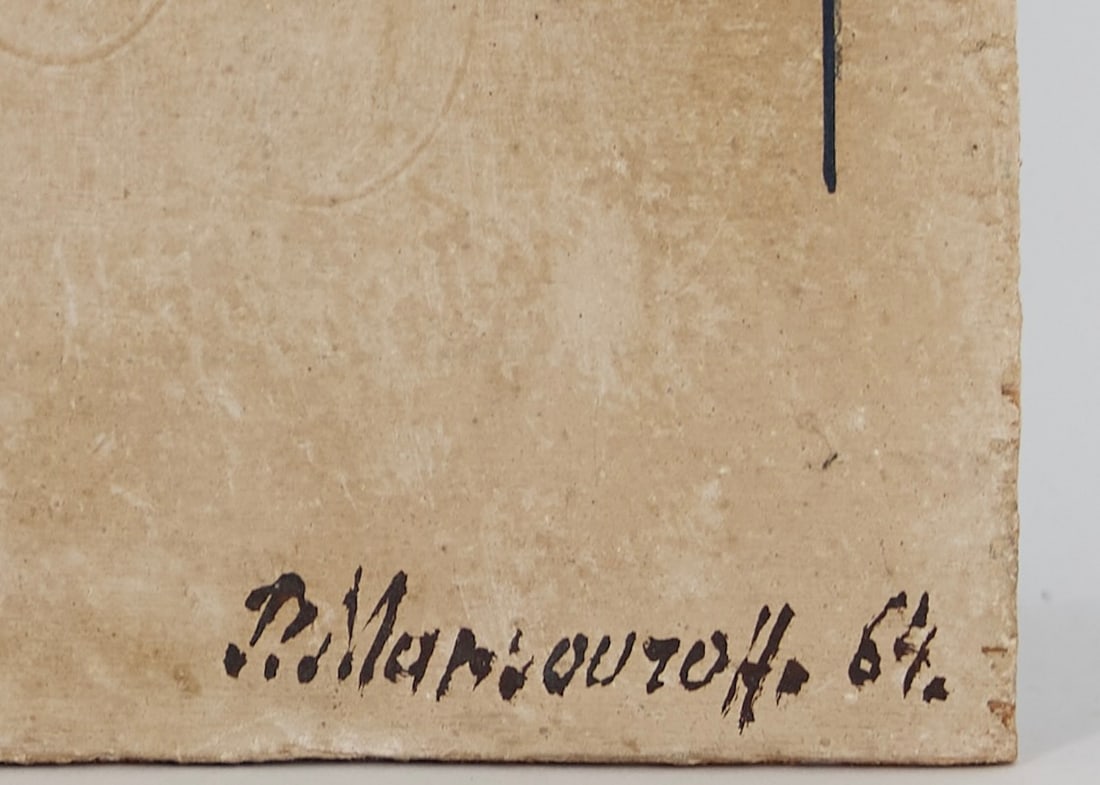 P. Mansouroff. 64.